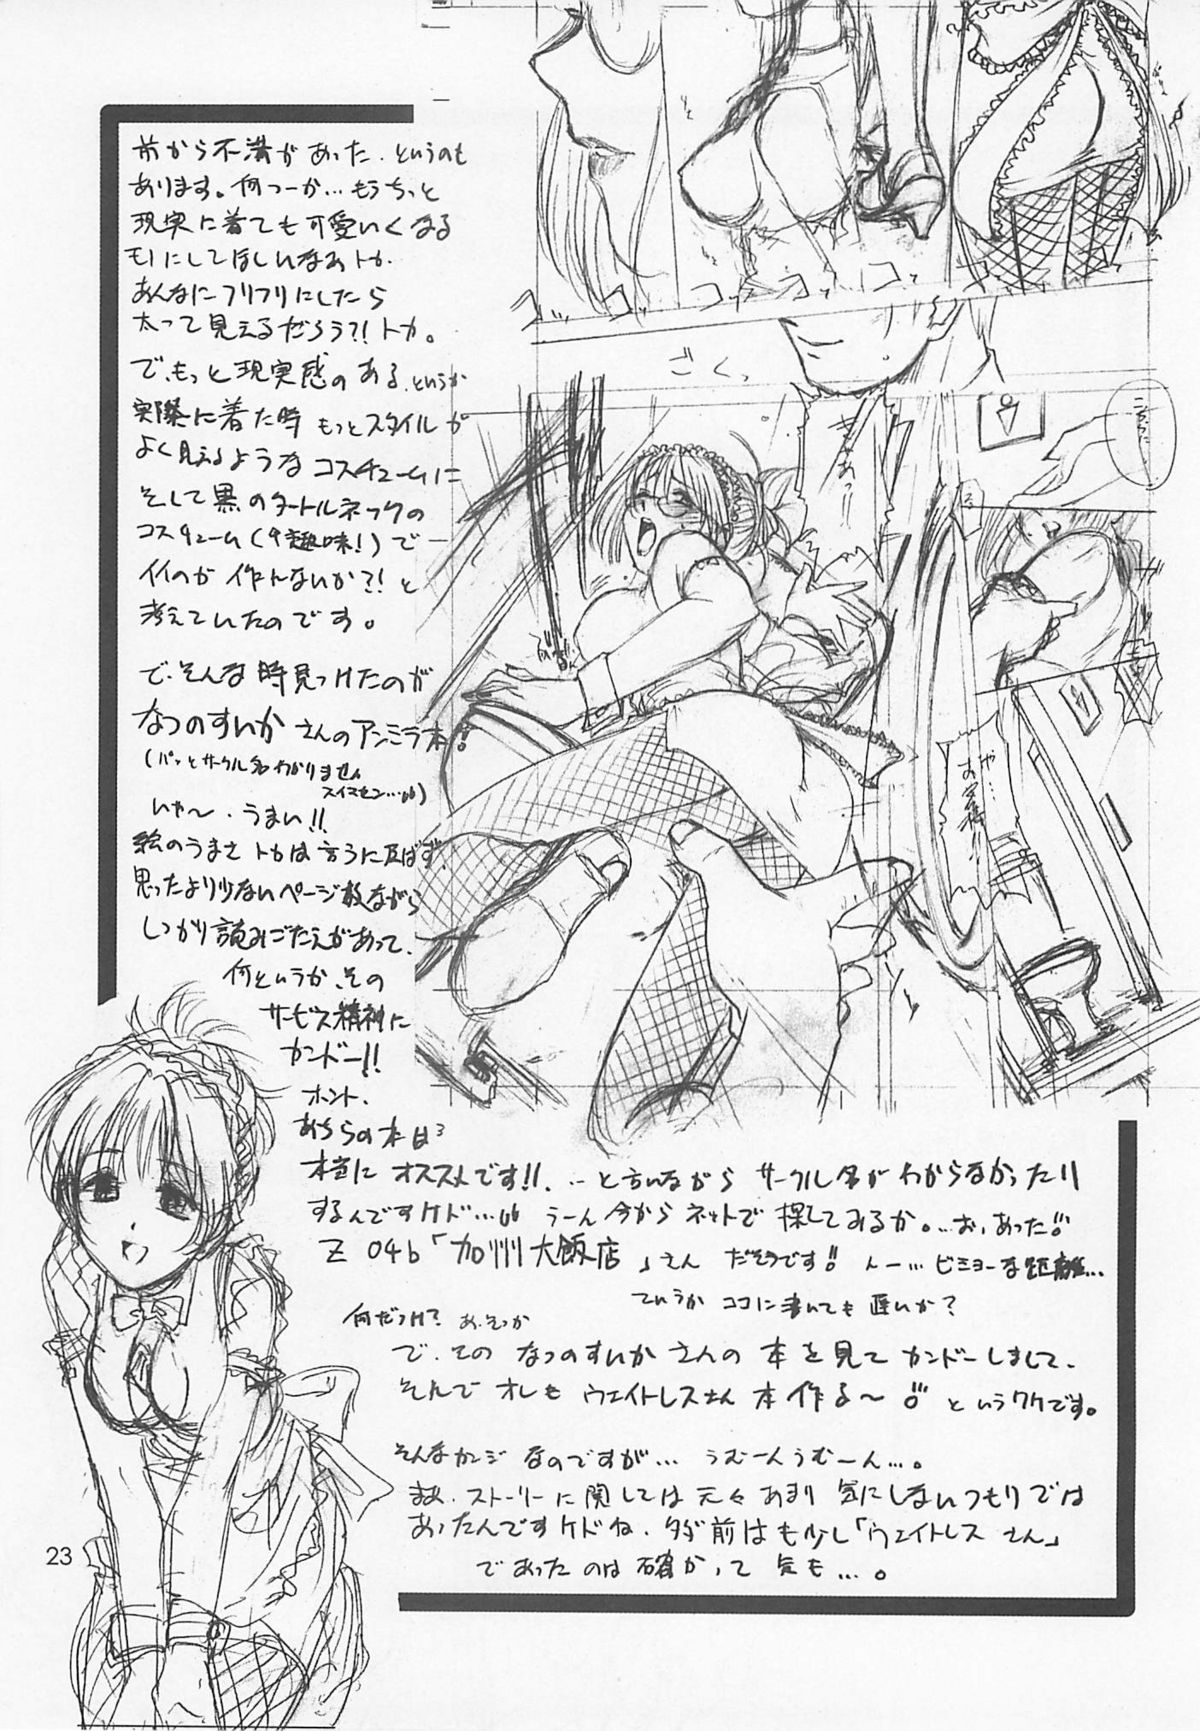 前から不満があった、というのも
あります。何つーか…もうちっと
現実に着ても可愛いくなる
モノにしてほしいなぁトカ
あんなにフリフリにしたら
太って見えるだろう?!トカ。
で、もっと現実感のある、というか
実際に着た時 もっとスタイルが
よく見えるような コスチュームに
そして黒のタートルネックの
コスチューム(趣味!)で
イイのか 作れんないか?!と
考えていたのです。
で、そんな時見つけたのが
なつのすいか さんのアンミラ本!!
(パッとサークル名わかりません
スイマセン…)
いや〜、うまい!!
絵のうまさ トカは言うに及ばず、
思ったより少ないページ数ながら
しっかり読みごたえがあって、
何というか、その
サービス精神に
カンドー!!
ホント、
あちらの本は
本当に オススメです!!、…と言いながら サークル名が わからなかったり
するんですケド… うーん 今から ネットで 探してみるか。…お、あった!!
Z 04b「加州大飯店」さん だそうです!! んー… ビミョーな距離…
ていうか ココに書いても 遅いか?
何だっけ? あ、そっか
で、その なつのすいか さんの 本を見て カンドーしまして、
そんで オレも ウェイトレスさん 本作る〜!! というワケです。
そんなカンジ なのですが… うむーんうむーん…。
まぁ、ストーリーに関しては 元々あまり 気にしないつもりでは
あったんですケドね、タダ前はも少し「ウェイトレスさん」
であったのは 確かって 気も…。
23
コッ コッ コッ コッ コッ
ごくっ
きゃあっ
や…
お客様